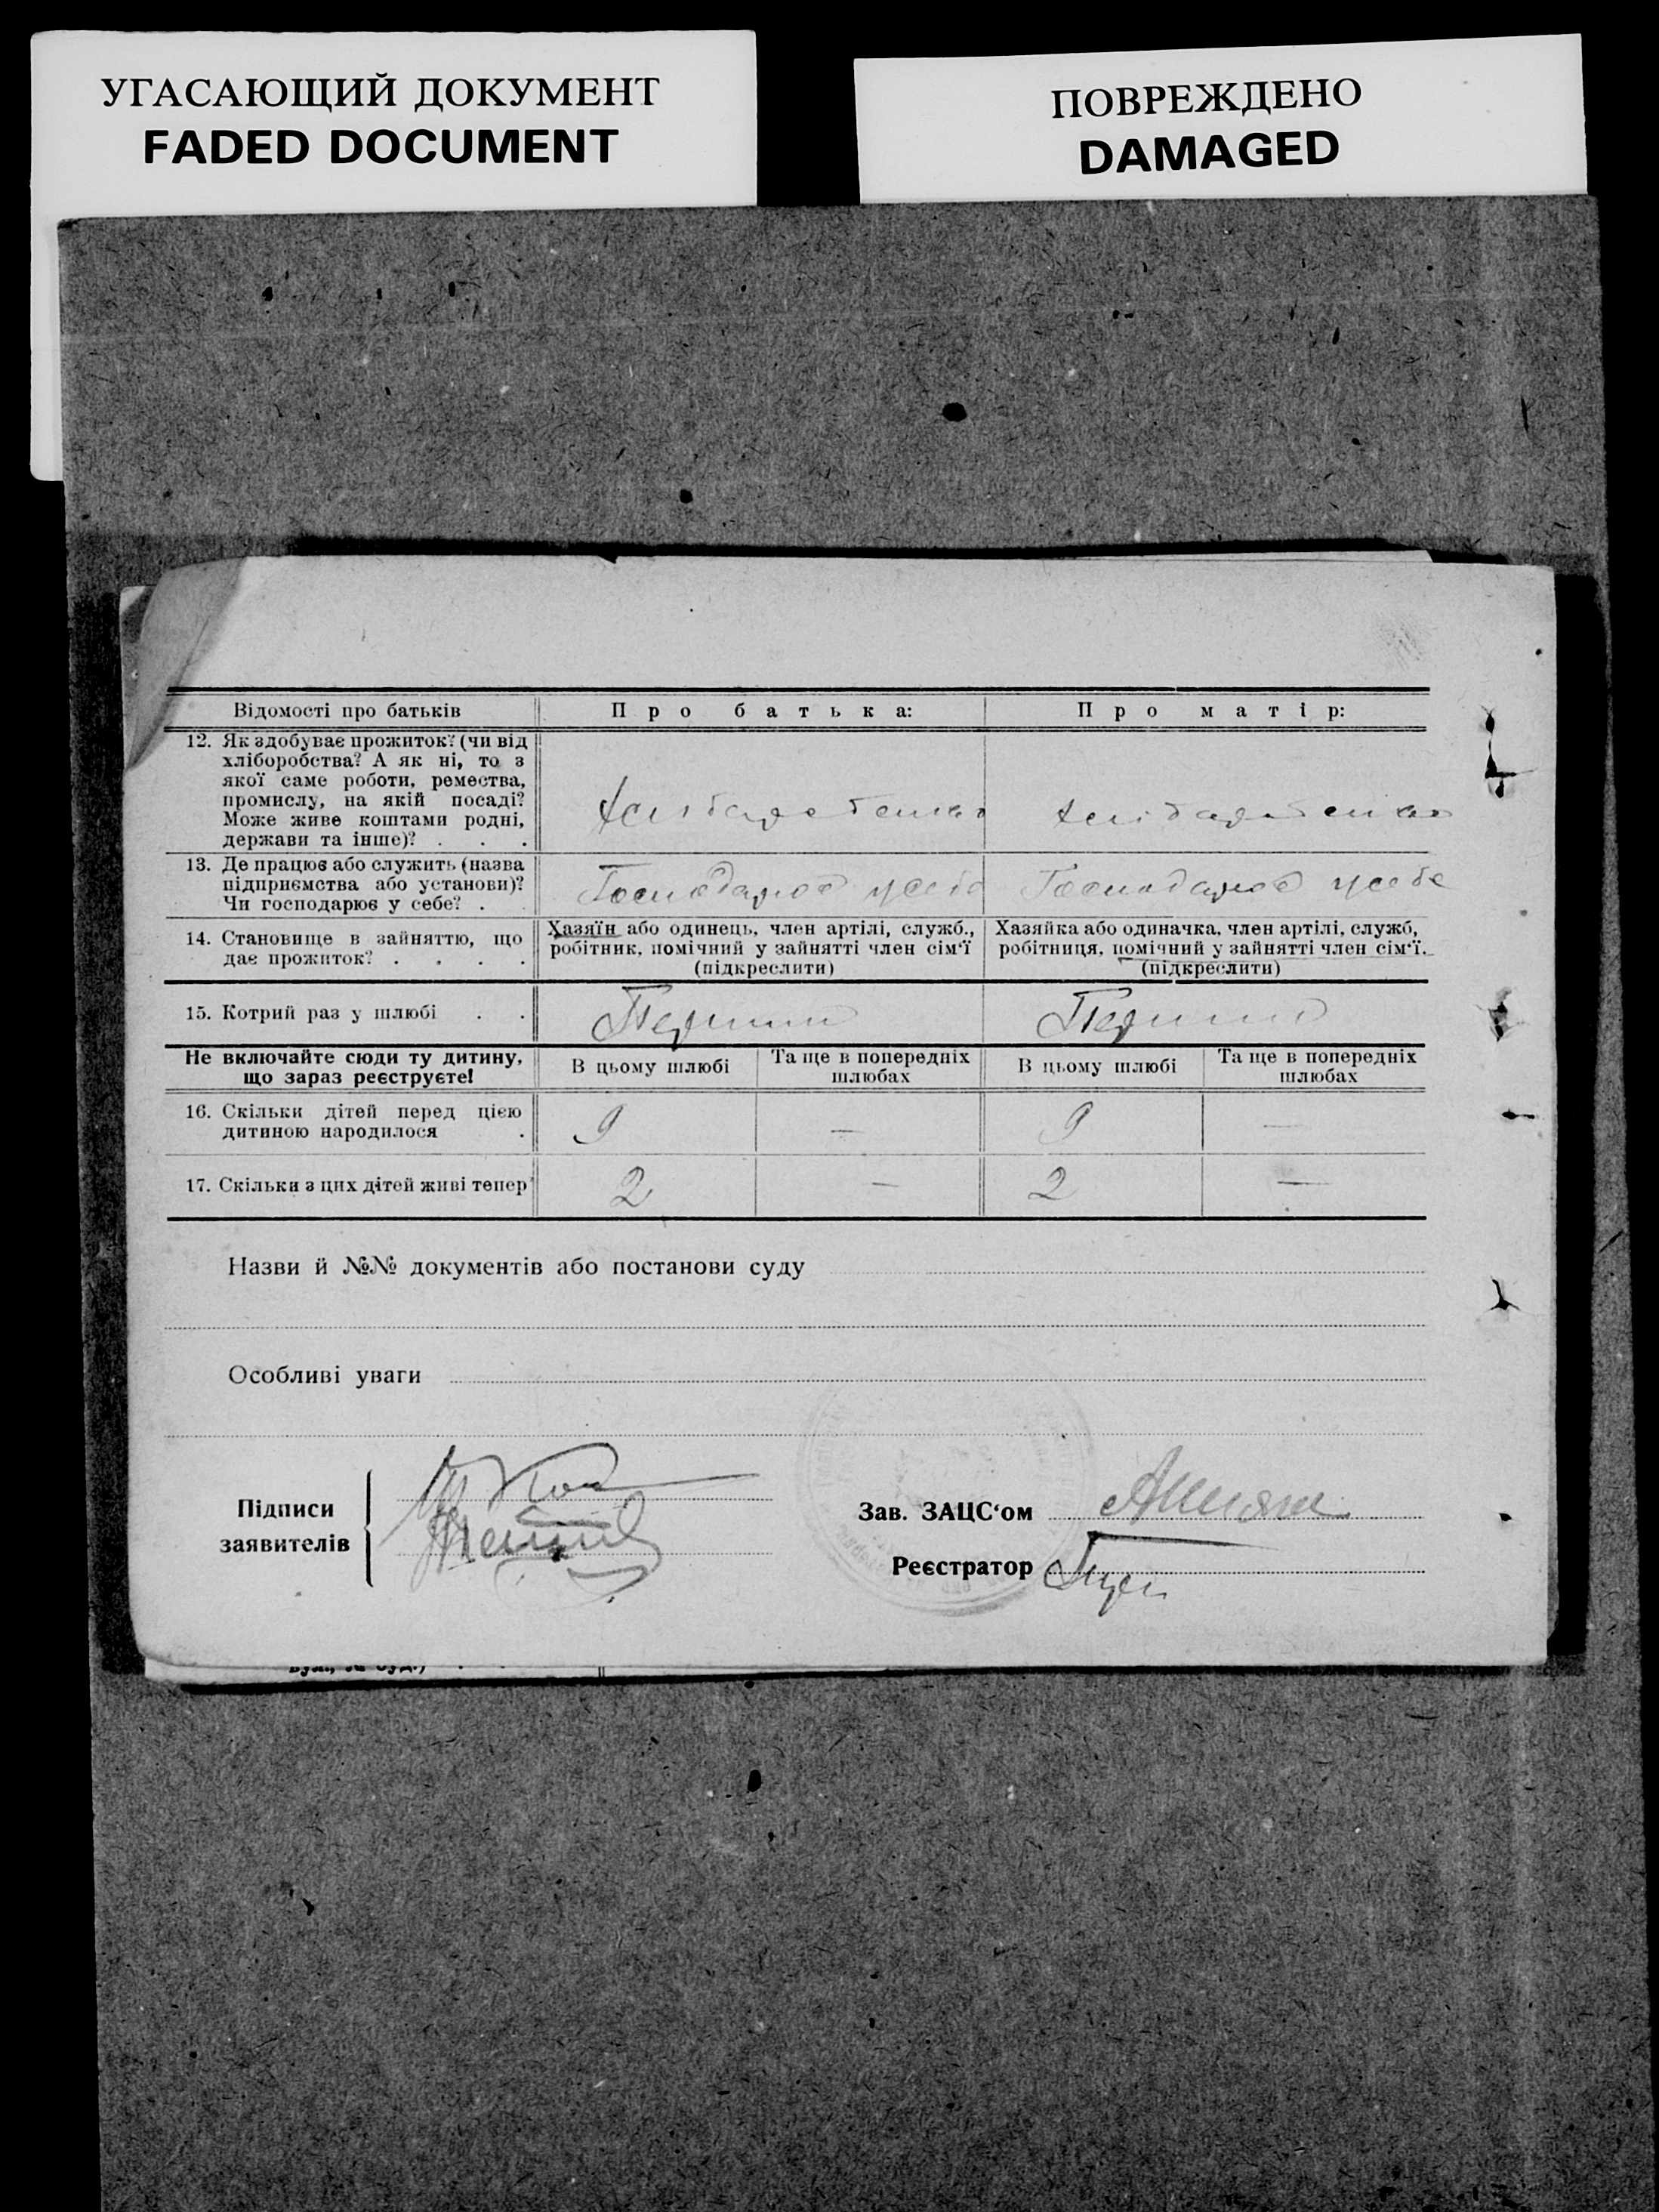 УГАСАЮЩИЙ ДОКУМЕНТ
FADED DOCUMENT
ПОВРЕЖДЕНО
DAMAGED
Відомості про батьків
Про батька:
Про матір:
12. Як здобуває прожиток? (чи від
хліборобства? А як ні, то з
якої саме роботи, ремества,
промислу, на якій посаді?
Може живе коштами родні,
держави та інше)? . . .
13. Де працює або служить (назва
підприємства або установи)?
Чи господарює у себе? .
Господарює усебе
Господарює усебе
14. Становище в зайняттю, що
дає прожиток? . . . .
Хазяїн або одинець, член артілі, служб.,
робітник, помічний у зайнятті член сім‘ї
(підкреслити)
Хазяйка або одиначка, член артілі, служб,
робітниця, помічний у зайнятті член сім‘ї.
(підкреслити)
15. Котрий раз у шлюбі . .
Перший
Перший
Не включайте сюди ту дитину,
що зараз реєструєте!
В цьому шлюбі
Та ще в попередніх
шлюбах
В цьому шлюбі
Та ще в попередніх
шлюбах
16. Скільки дітей перед цією
дитиною народилося .
9
—
9
—
17. Скільки з цих дітей живі тепер
2
—
2
—
Назви й №№ документів або постанови суду
Особливі уваги
Підписи
заявителів
Зав. ЗАЦС‘ом
Реєстратор